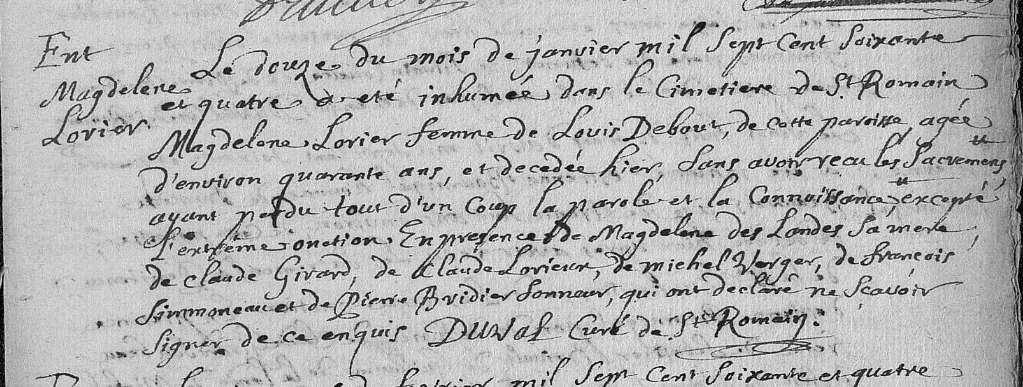 Ent
Magdelene
Lorier
Le douze du mois de janvier mil Sept Cent Soixante
et quatre a eté inhumée dans le Cimetiere de St Romain
Magdelene Lorier femme de Louis Debout, de cette paroisse, agée
d'environ quarante ans, et decedée hier, Sans avoir recu les Sacremens,
ayant perdu tout d'un Coup la parole et la Connoissance, excepté
l'extreme onction. En presence de Magdelene des Landes Sa mere,
de Claude Girard, de Claude Lorieux, de michel Verger, de françois
Simmoneau et de Pierre Bridier Sonneur, qui ont declaré ne Scavoir
Signer de ce enquis DUVAL Curé de St Romain.
mil Sept Cent Soixante et quatre